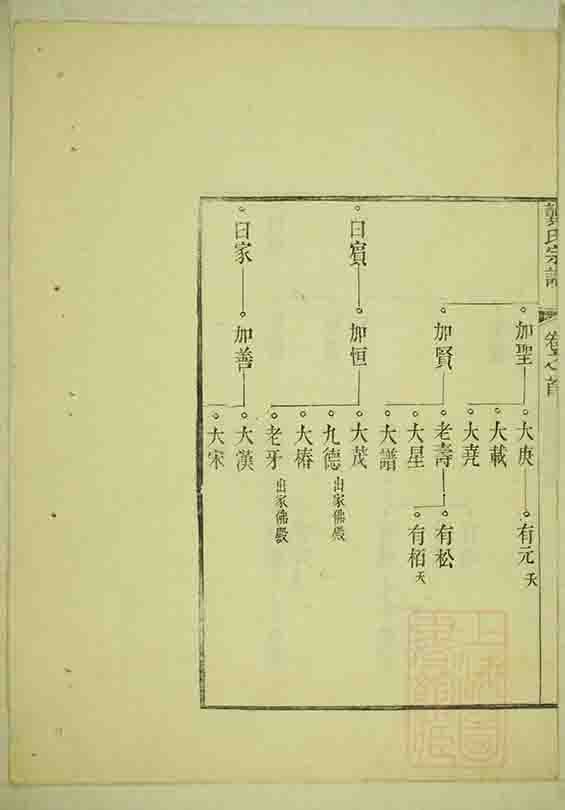 龔氏宗譜
卷之首
加聖
大庚
有元 夭
大載
大堯
加賢
老壽
有松
有栢 夭
大星
大譜
曰賓
加恒
大茂
九德 出家佛殿
大椿
老牙 出家佛殿
曰家
加善
大漢
大宋